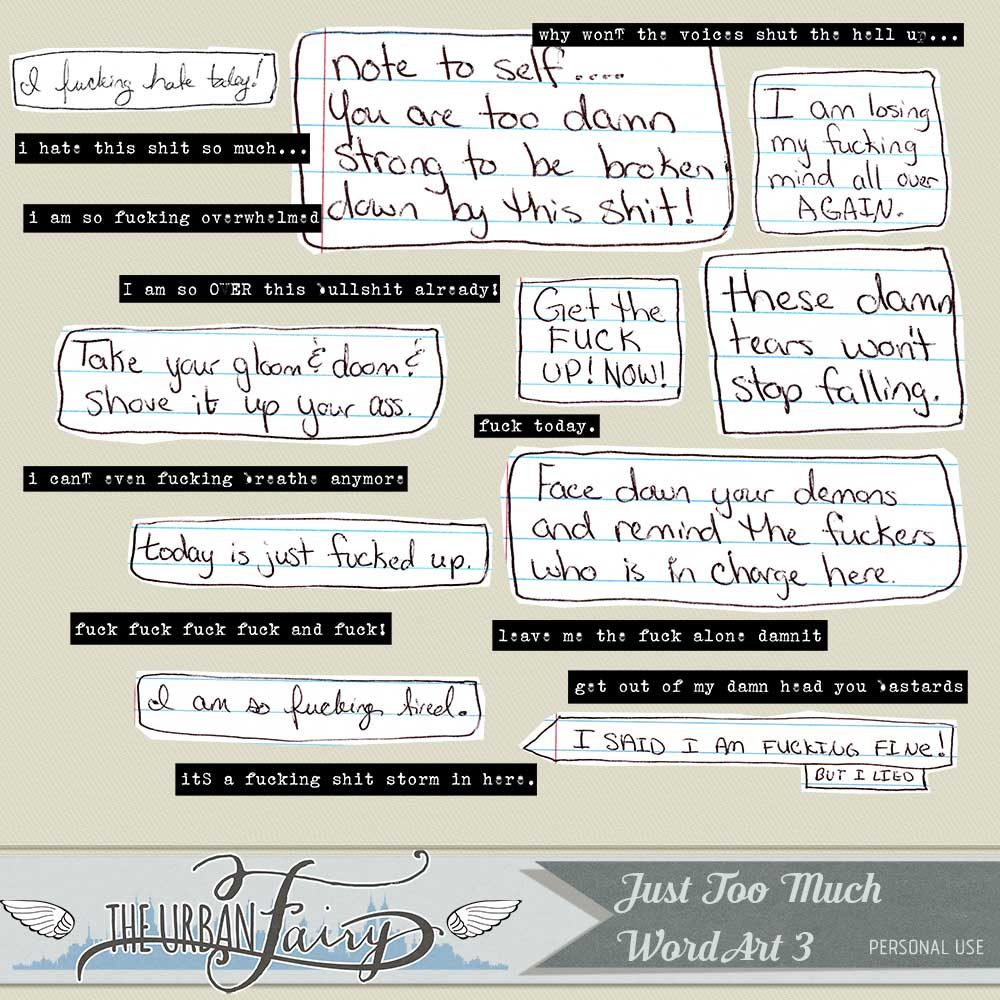 why wonT the voices shut the hell up...
I fucking hate today!
note to self....
You are too damn
strong to be broken
down by this shit!
I am losing
my fucking
mind all over
AGAIN.
i hate this shit so much...
i am so fucking overwhelmed
I am so OVER this bullshit already!
Get the
FUCK
UP! NOW!
these damn
tears won't
stop falling.
Take your gloom & doom &
shove it up your ass.
fuck today.
i canT even fucking breathe anymore
Face down your demons
and remind the fuckers
who is in charge here.
today is just fucked up.
fuck fuck fuck fuck and fuck!
leave me the fuck alone damnit
get out of my damn head you bastards
I am so fucking tired.
I SAID I AM FUCKING FINE!
BUT I LIED
itS a fucking shit storm in here.
THE URBAN Fairy
Just Too Much
Word Art 3
PERSONAL USE